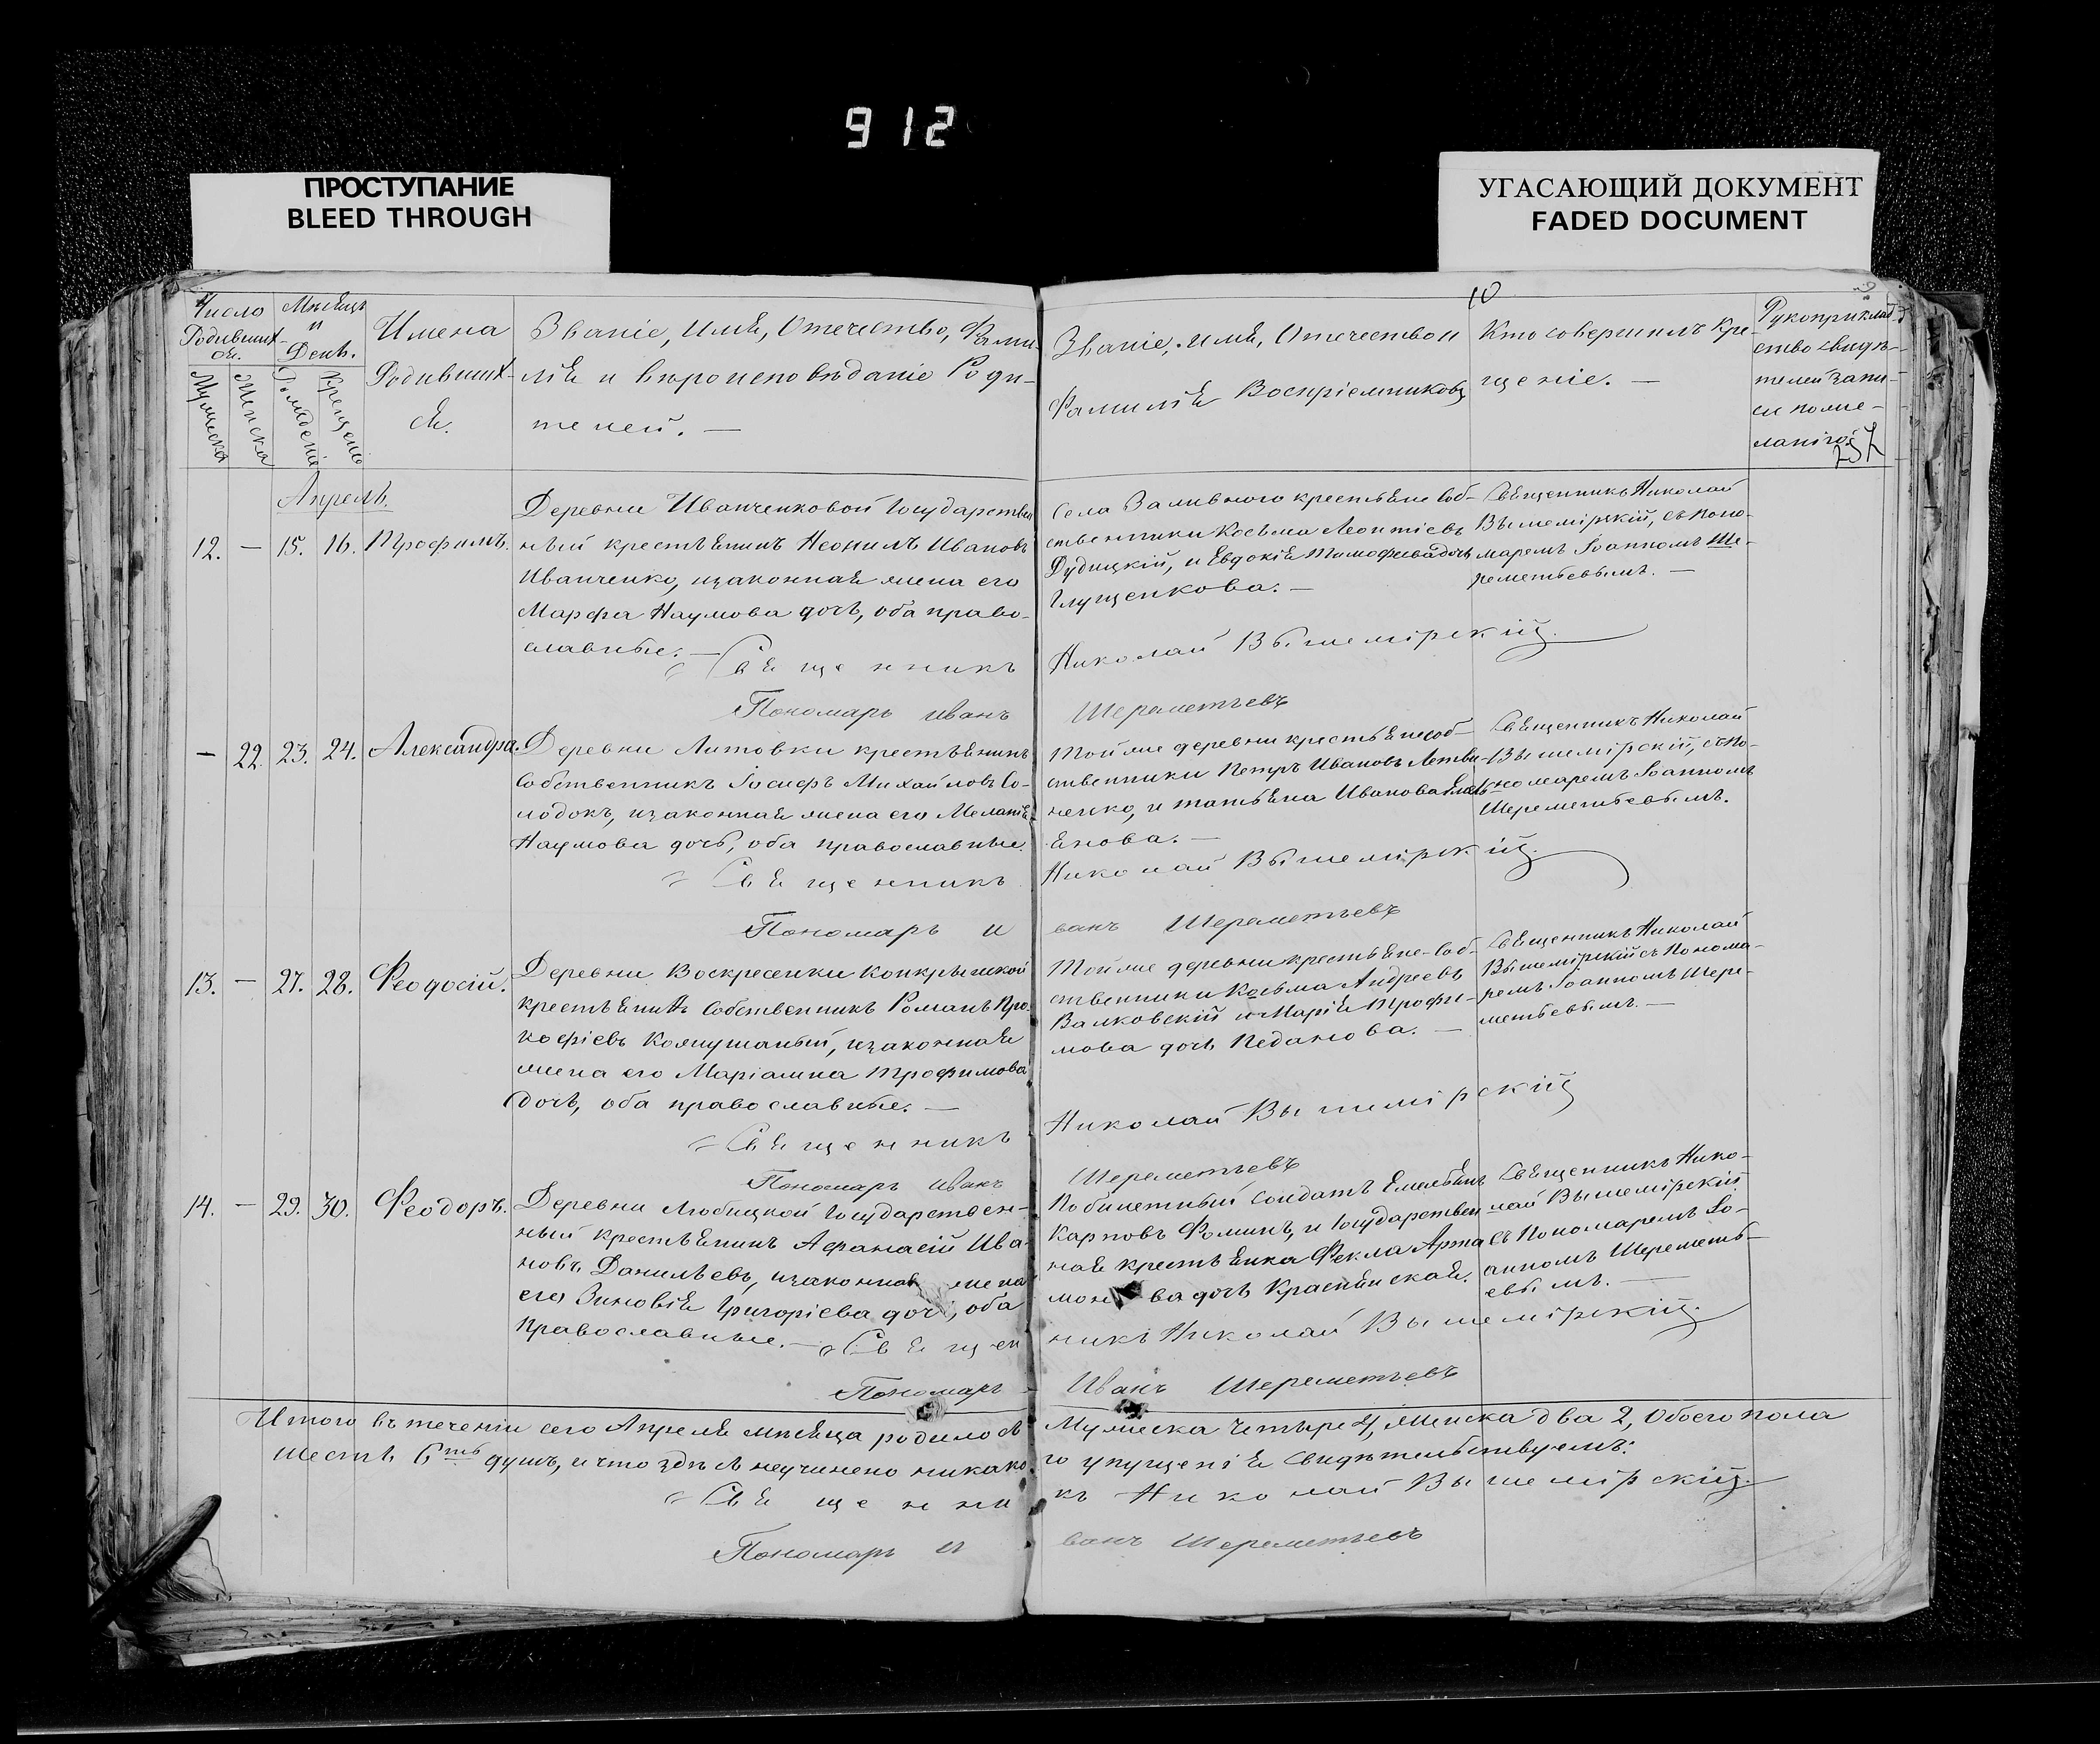 912
ПРОСТУПАНИЕ
BLEED THROUGH
УГАСАЮЩИЙ ДОКУМЕНТ
FADED DOCUMENT
Число Родившихся.
Мужеска
Женска
Мѣсяцъ и День.
Рожденіе
Крещеніе
Имена
Родивших-
ся.
Званіе, имя, Отечество, Фами-
лія и вѣроисповѣданіе Роди-
телей. —
10
Званіе, имя, Отечество и
Фамилія Воспріемниковъ
Кто совершилъ Кре-
щеніе. —
Рукоприклад-
ство свидѣ-
телей запи-
си по же-
ланію
257
Апрель.
12. — 15. 16. Трофимъ.
Деревни Иванченковой Государствен
ный крестьянинъ Неонилъ Ивановъ
Иванченко, и законная жена его
Марфа Наумова дочь, оба право-
славные. —
Священникъ
Пономарь Иванъ
Села Заливного крестьяне Соб-
ственники Косьма Леонтіевъ
Дудицкій, и Евдокія Тимофеева дочь
Глущенкова. —
Николай Вышемірскій.
Шереметьевъ
Священникъ Николай
Вышемірскій, съ поно-
маремъ Іоанномъ Ше-
реметьевымъ. —
— 22. 23. 24. Александра.
Деревни Литовки крестьянинъ
Собственникъ Іосифъ Михайловъ Со-
лодокъ, и законная жена его Меланія
Наумова дочь, оба православные.
Священникъ
Пономарь И
Той же деревни крестьяне соб-
ственники Петръ Ивановъ Летви-
ненко, и Татьяна Иванова
Николай Вышемірскій.
ванъ Шереметьевъ
Священникъ Николай
Вышемірскій, съ по-
номаремъ Іоанномъ
Шереметьевымъ.
13. — 27. 28. Феодосій.
Деревни Воскресенки
крестьянинъ Собственникъ Романъ Про-
кофіевъ и законная
жена его Маріамна Трофимова
дочь, оба православные. —
Священникъ
Пономарь Иванъ
Той же деревни крестьяне-Соб-
ственники Косьма Андреевъ
Валковскій и Марія Трофи-
мова дочь Педанова. —
Николай Вышемірскій
Шереметьевъ
Священникъ Николай
Вышемірскій съ Понома-
ремъ Іоанномъ Шере-
метьевымъ. —
14. — 29. 30. Феодоръ.
Деревни Любицкой Государствен-
ный крестьянинъ Афанасій Ива-
новъ Данильевъ, и законная жена
его Зиновія Григорієва дочь, оба
Православные. —
Священ
Пономарь
Побилетный Солдатъ Емельянъ
Карповъ Фоминъ, и Государствен
ная крестьянка Фекла Арта-
монова дочь Краснянская.
никъ Николай Вышемірскій.
Иванъ Шереметьевъ
Священникъ Нико-
лай Вышемірскій
съ Пономаремъ Іо-
анномъ Шереметь-
евымъ. —
Итого въ теченіи сего Апреля мѣсяца родилось Мужеска Четыре 4, Женска два 2, Обоего пола
шесть 6ть душъ, и что здѣсь неучинено никако го упущенія Свидѣтельствуемъ:
Священникъ Николай Вышемірскій.
Пономарь Иванъ Шереметьевъ